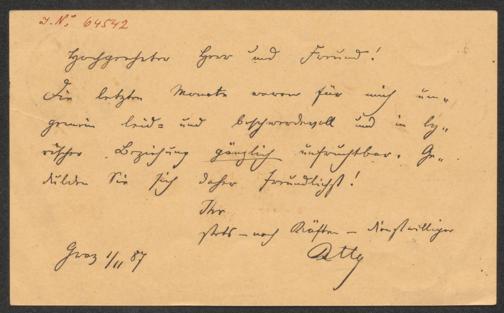 I.N. 64542
Hochgeehrter Herr und Freund!
Die letzten Monate waren für mich un-
gemein leid- und beschwerdevoll und in ly-
rischer Beziehung gänzlich unfruchtbar. Ge-
dulden Sie sich daher freundlichst!
Ihr
stets – nach Kräften – dienstwilliger
Graz 1/11 87